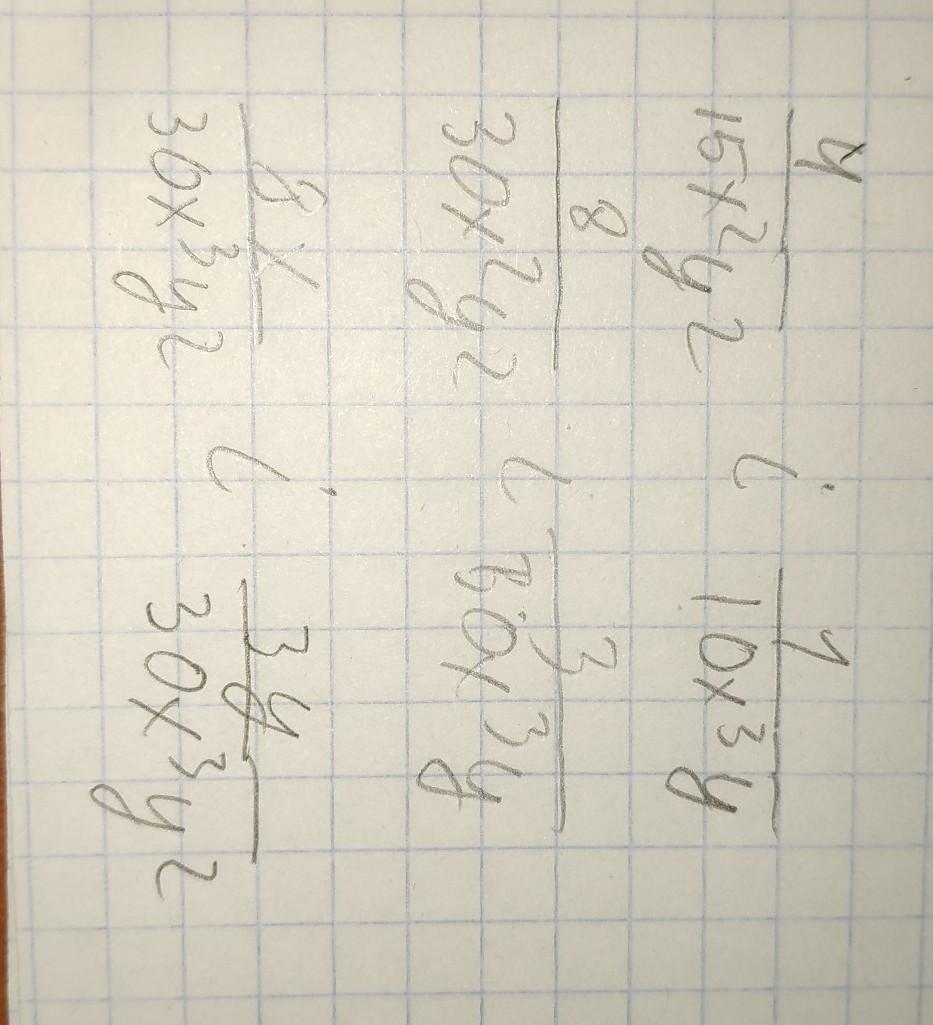 4/15x²y² i 1/10x³y
8/30x²y² i 3/30x³y
8x/30x³y² i 3y/30x³y²